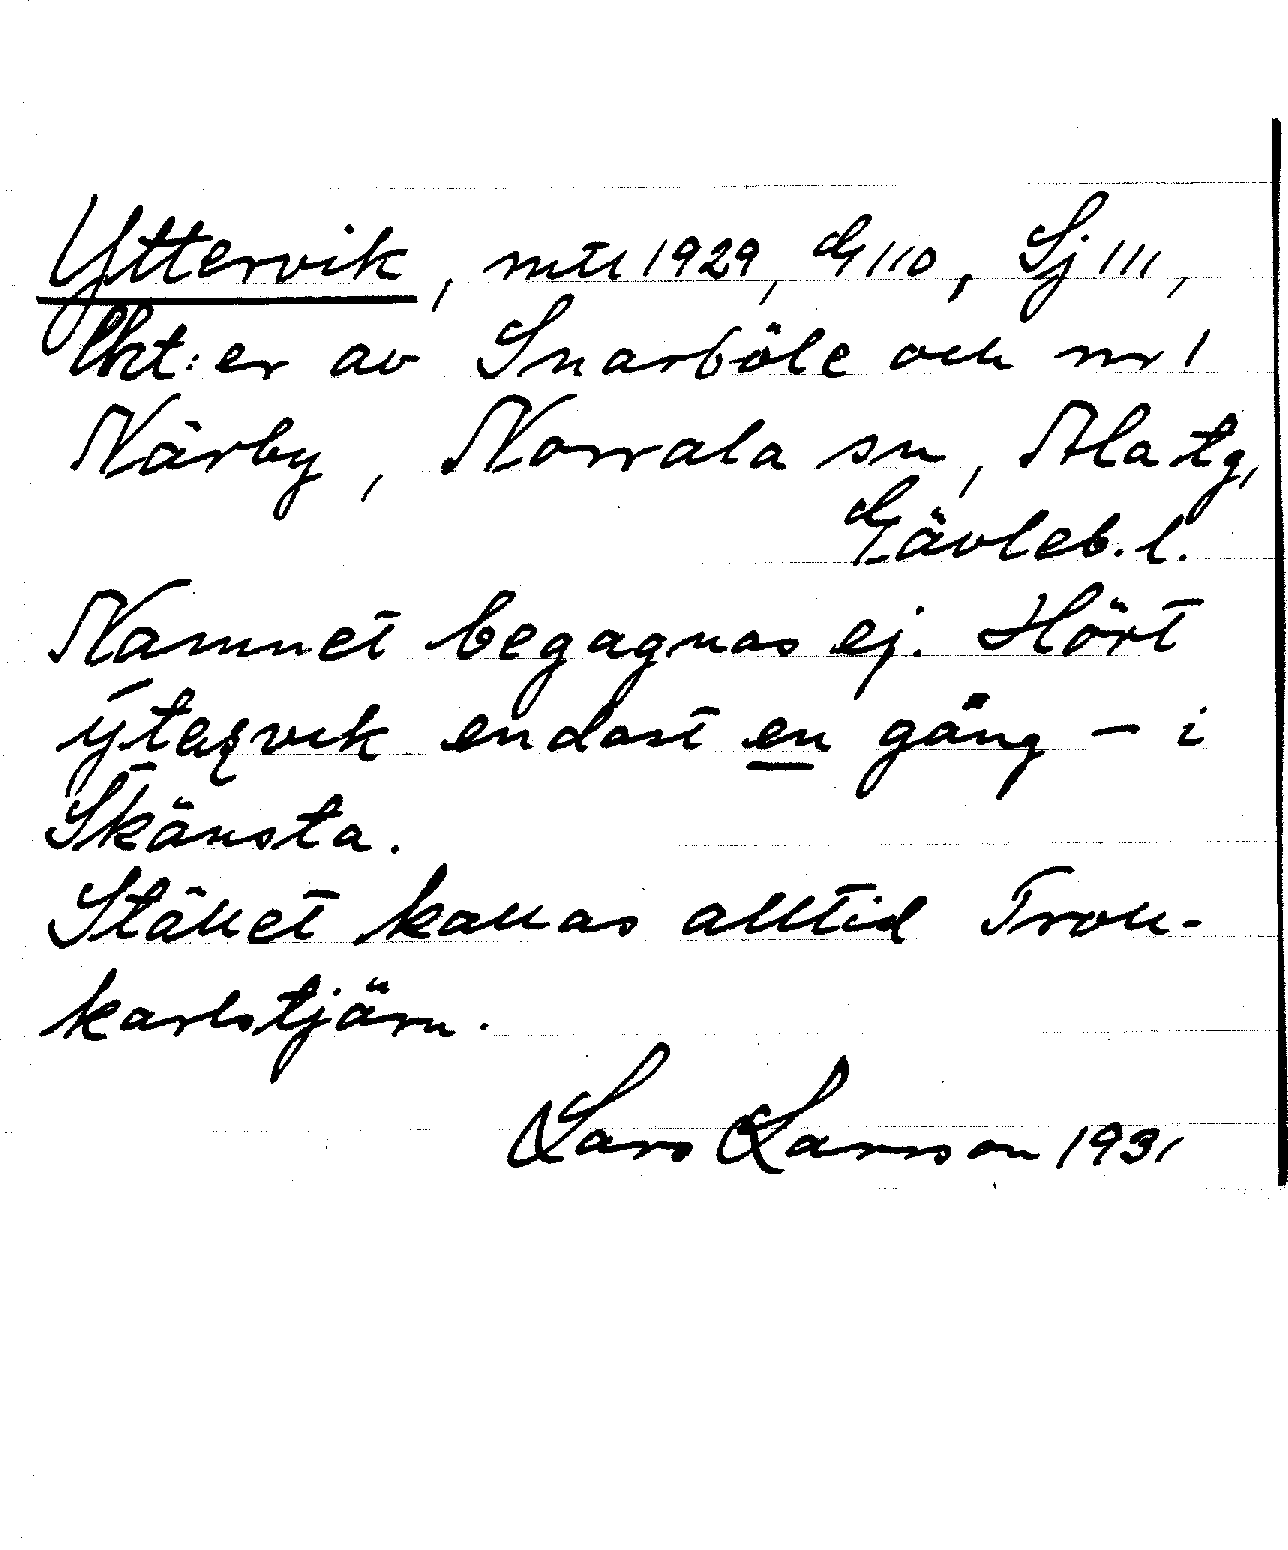 Yttervik, mtl 1929, G 110, Sj 111,
lht:er av Snarböle och nr 1
Närby, Norrala sn, Ala tg,
Gävleb. l.
Namnet begagnas ej. Hört
endast en gång – i
Skänsta.
Stället kallas alltid Troll-
karlstjärn.
Lars Larsson 1931